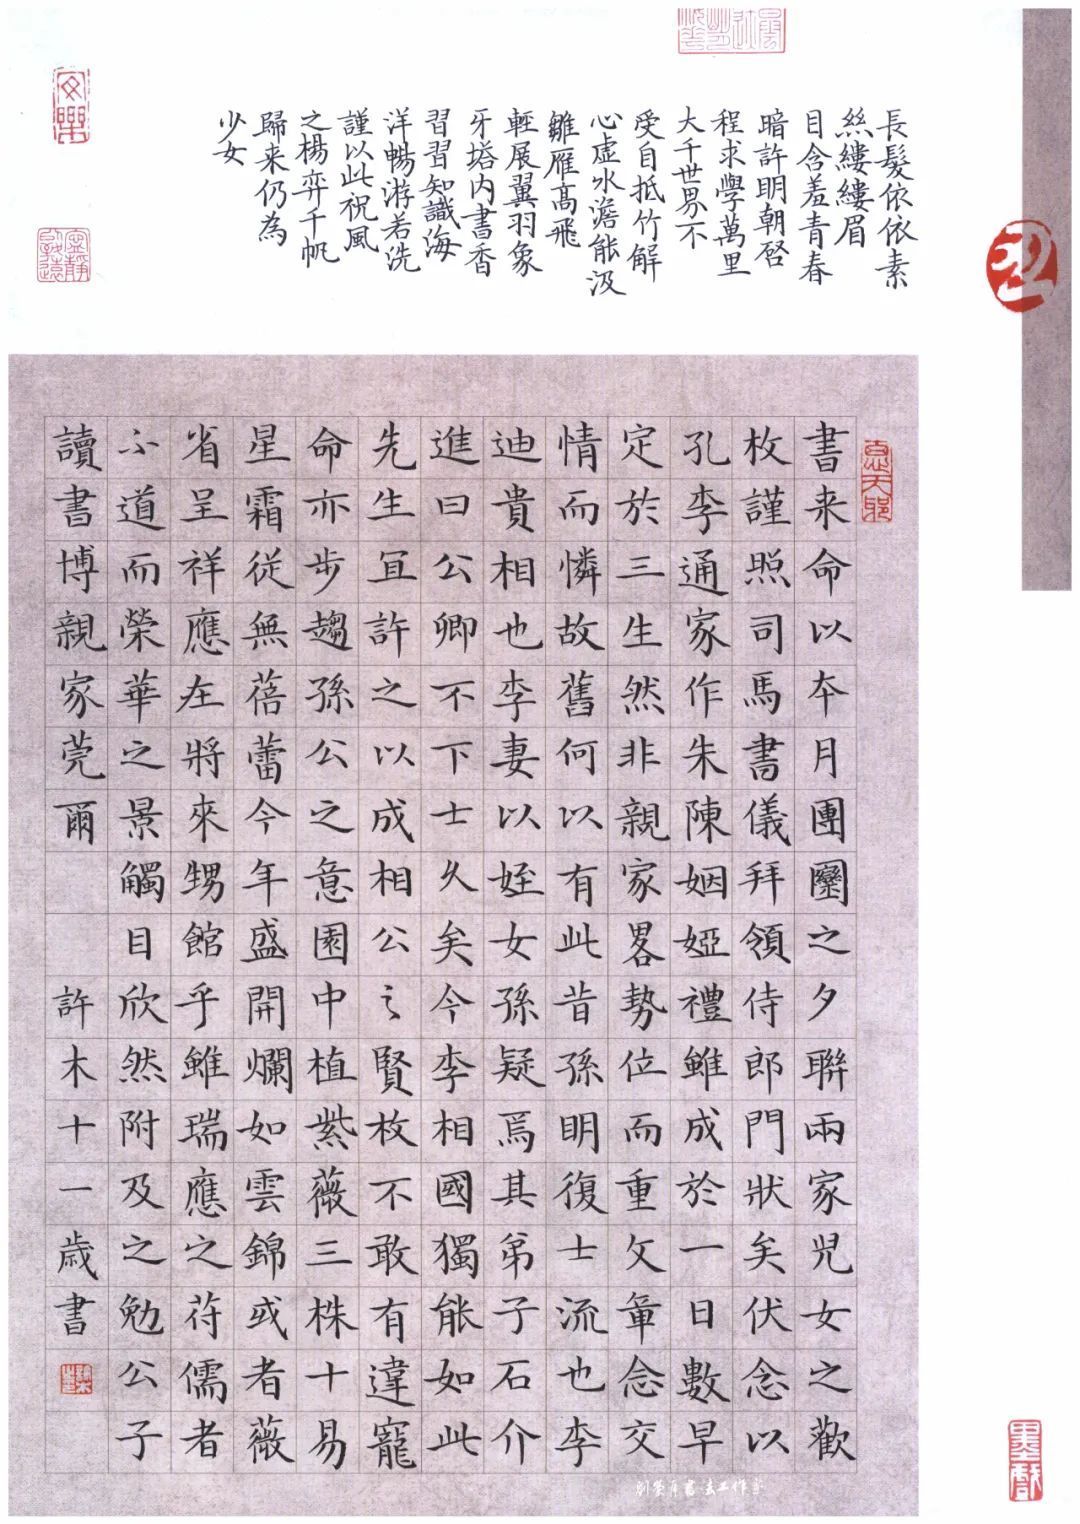 長髮依依素
絲縷縷眉
目含羞青春
暗許明朝啓
程求學萬里
大千世界不
受自抵竹解
心虛水澹能汲
雛雁高飛
輕展翼羽象
牙塔内書香
習習知識海
洋暢游若洗
謹以此祝風
之楊弈千帆
歸来仍為
少女
寧靜致遠
思无邪
書来命以本月團圞之夕聯兩家児女之歡
枚謹照司馬書儀拜領侍郎門狀矣伏念以
孔李通家作朱陳姻婭禮雖成於一日數早
定於三生然非親家畧勢位而重文章念交
情而憐故舊何以有此昔孫明復士流也李
迪貴相也李妻以姪女孫疑焉其弟子石介
進曰公卿不下士久矣今李相國獨能如此
先生宜許之以成相公之賢枚不敢有違寵
命亦步趨孫公之意園中植紫薇三株十易
星霜從無蓓蕾今年盛開爛如雲錦或者薇
省呈祥應在將來甥館乎雖瑞應之符儒者
不道而榮華之景觸目欣然附及之勉公子
讀書博親家莞爾 許木十一歲書
墨戲